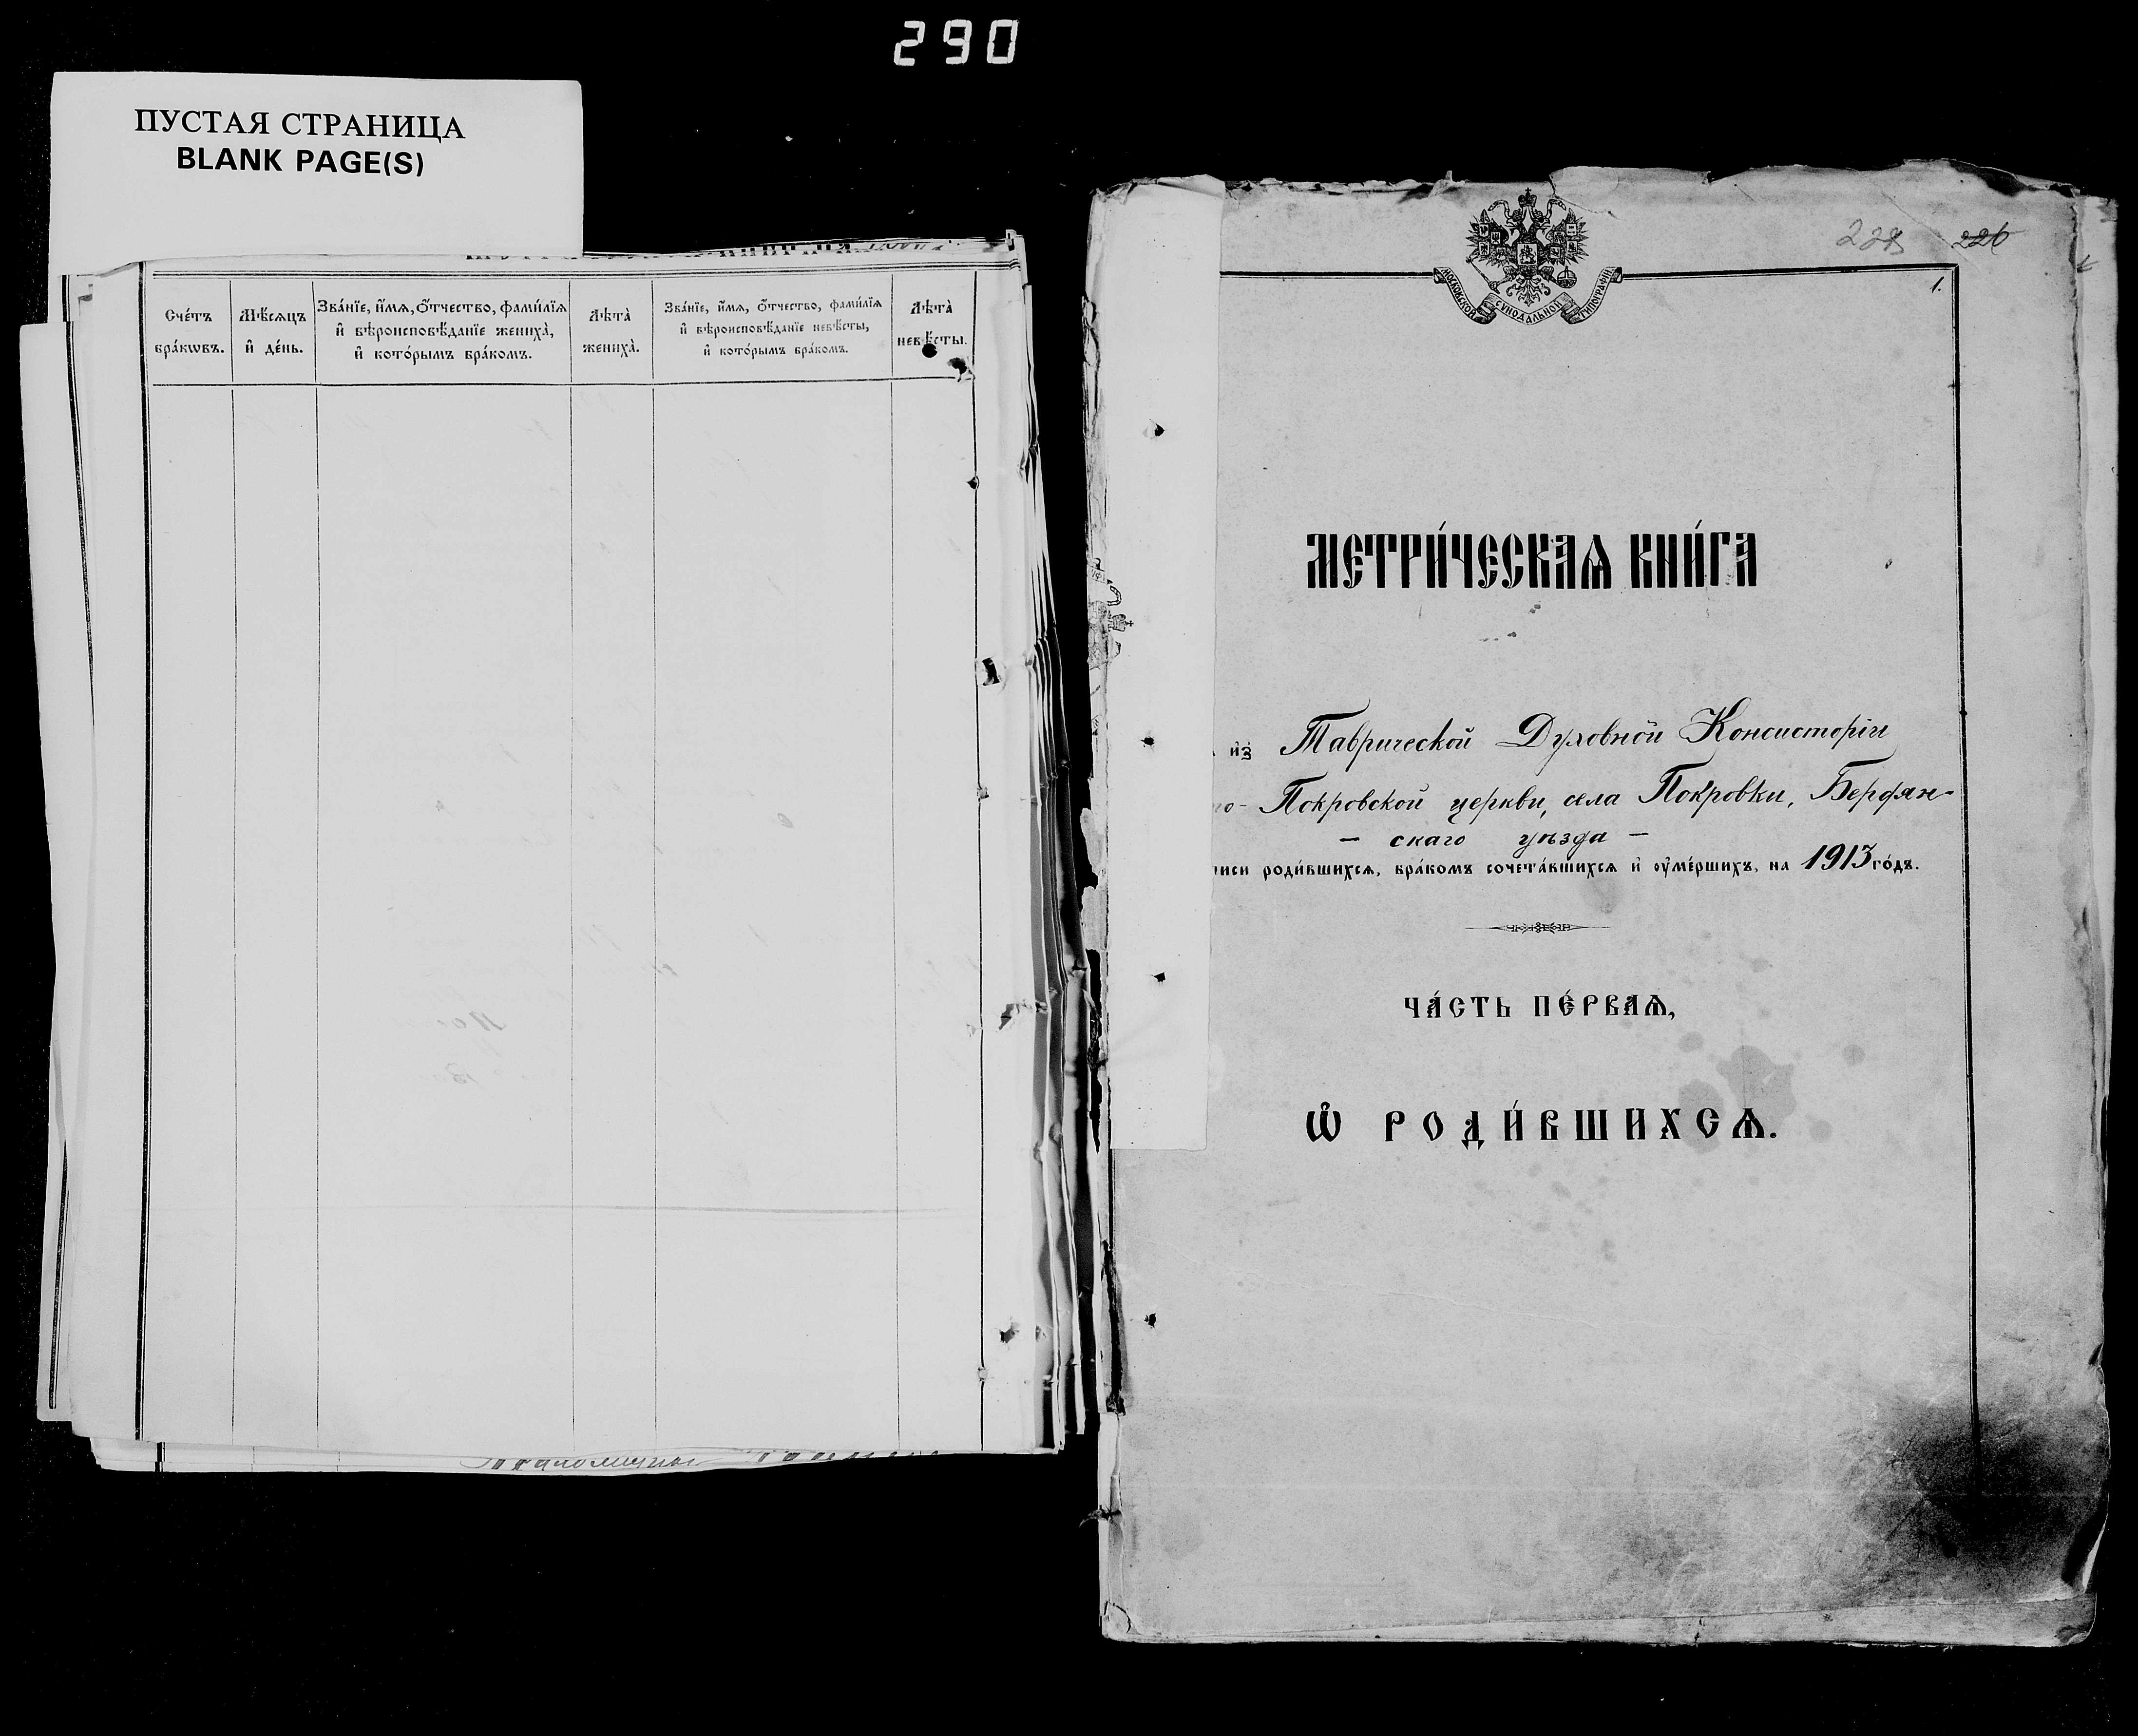 290
ПУСТАЯ СТРАНИЦА
BLANK PAGE(S)
Сче́тъ бра́кѡвъ.
Мѣ́сѧцъ и҆ де́нь.
Зва́нїе, и҆́мѧ, ѻ҆́тчество, фами́лїѧ и҆ вѣроисповѣ́данїе жениха̀, и҆ кото́рымъ бра́комъ.
Лѣта̀ жениха̀.
Зва́нїе, и҆́мѧ, ѻ҆́тчество, фами́лїѧ и҆ вѣроисповѣ́данїе невѣ́сты, и҆ кото́рымъ бра́комъ.
Лѣта̀ невѣ́сты.
226
1.
МОСКОВСКОЙ СѴНОДАЛЬНОЙ ТИПОГРАФІИ
МЕТРИ́ЧЕСКАѦ КНИ́ГА
и҆з̾ Таврической Духовной Консисторіи
Покровской церкви, села Покровки, Бердян-
– скаго уѣзда –
роди́вшихсѧ, бра́комъ сочета́вшихсѧ и҆ ѹ҆ме́ршихъ, на 1913 го́дъ.
ЧА́СТЬ ПЕ́РВАѦ,
Ѡ҆ РОДИ́ВШИХСѦ.